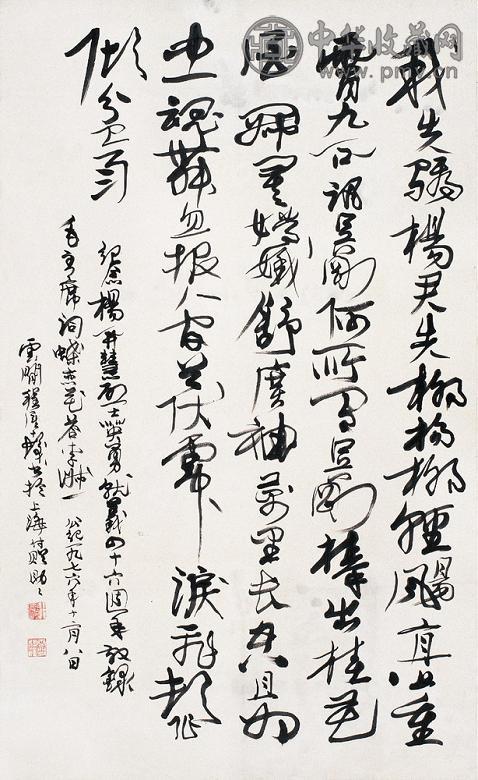 中华收藏网
我失驕楊君失柳楊柳輕颺直上重
霄九问訊吴剛何所有吴剛捧出桂花
酒寂寞嫦娥舒廣袖萬里長空且为
忠魂舞忽報人间曾伏虎淚飛顿作
倾盆雨
紀念楊開慧烈士英勇就義四十六週年敬錄
毛主席词蝶恋花答李淑一 公紀一九七六年十一月八日
雲間程 书於上海